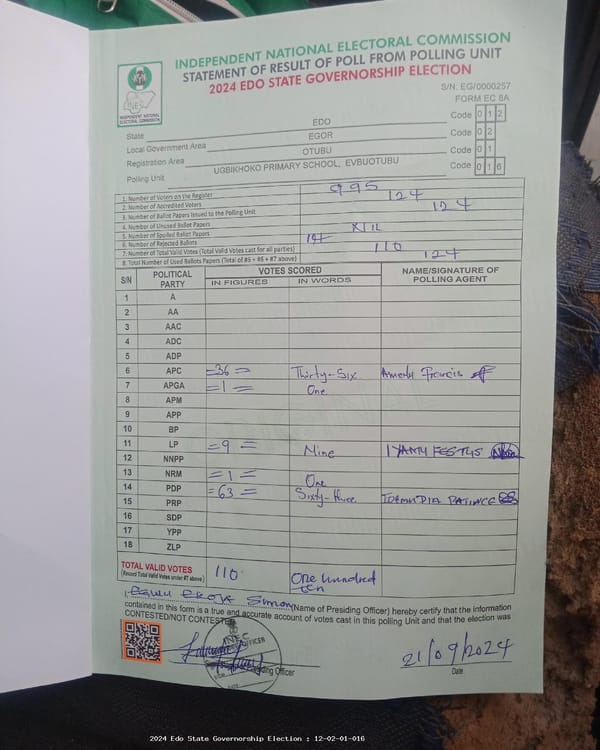 INDEPENDENT NATIONAL ELECTORAL COMMISSION
STATEMENT OF RESULT OF POLL FROM POLLING UNIT
2024 EDO STATE GOVERNORSHIP ELECTION
INEC
INDEPENDENT NATIONAL ELECTORAL COMMISSION
S/N: EG/0000257
FORM EC 8A
State EDO Code 0 1 2
Local Government Area EGOR Code 0 2
Registration Area OTUBU Code 0 1
Polling Unit UGBIKHOKO PRIMARY SCHOOL, EVBUOTUBU Code 0 1 6
1. Number of Voters on the Register 995
2. Number of Accredited Voters 124
3. Number of Ballot Papers Issued to the Polling Unit 124
4. Number of Unused Ballot Papers
5. Number of Spoiled Ballot Papers
6. Number of Rejected Ballots
7. Number of Total Valid Votes (Total Valid Votes cast for all parties) 110
8. Total Number of Used Ballots Papers (Total of #5 + #6 + #7 above) 124
S/N POLITICAL PARTY VOTES SCORED NAME/SIGNATURE OF POLLING AGENT
IN FIGURES IN WORDS
1 A
2 AA
3 AAC
4 ADC
5 ADP
6 APC =36= Thirty-Six Francis
7 APGA =1= One
8 APM
9 APP
10 BP
11 LP =9= Nine FESTUS
12 NNPP
13 NRM =1= One
14 PDP =63= Sixty-three PATIENCE
15 PRP
16 SDP
17 YPP
18 ZLP
TOTAL VALID VOTES 110 One hundred
(Record Total Valid Votes under #7 above) ten
I, Simon (Name of Presiding Officer) hereby certify that the information
contained in this form is a true and accurate account of votes cast in this polling Unit and that the election was
CONTESTED/NOT CONTESTED
INEC
OFFICER
Presiding Officer
21/09/2024
Date
2024 Edo State Governorship Election : 12-02-01-016